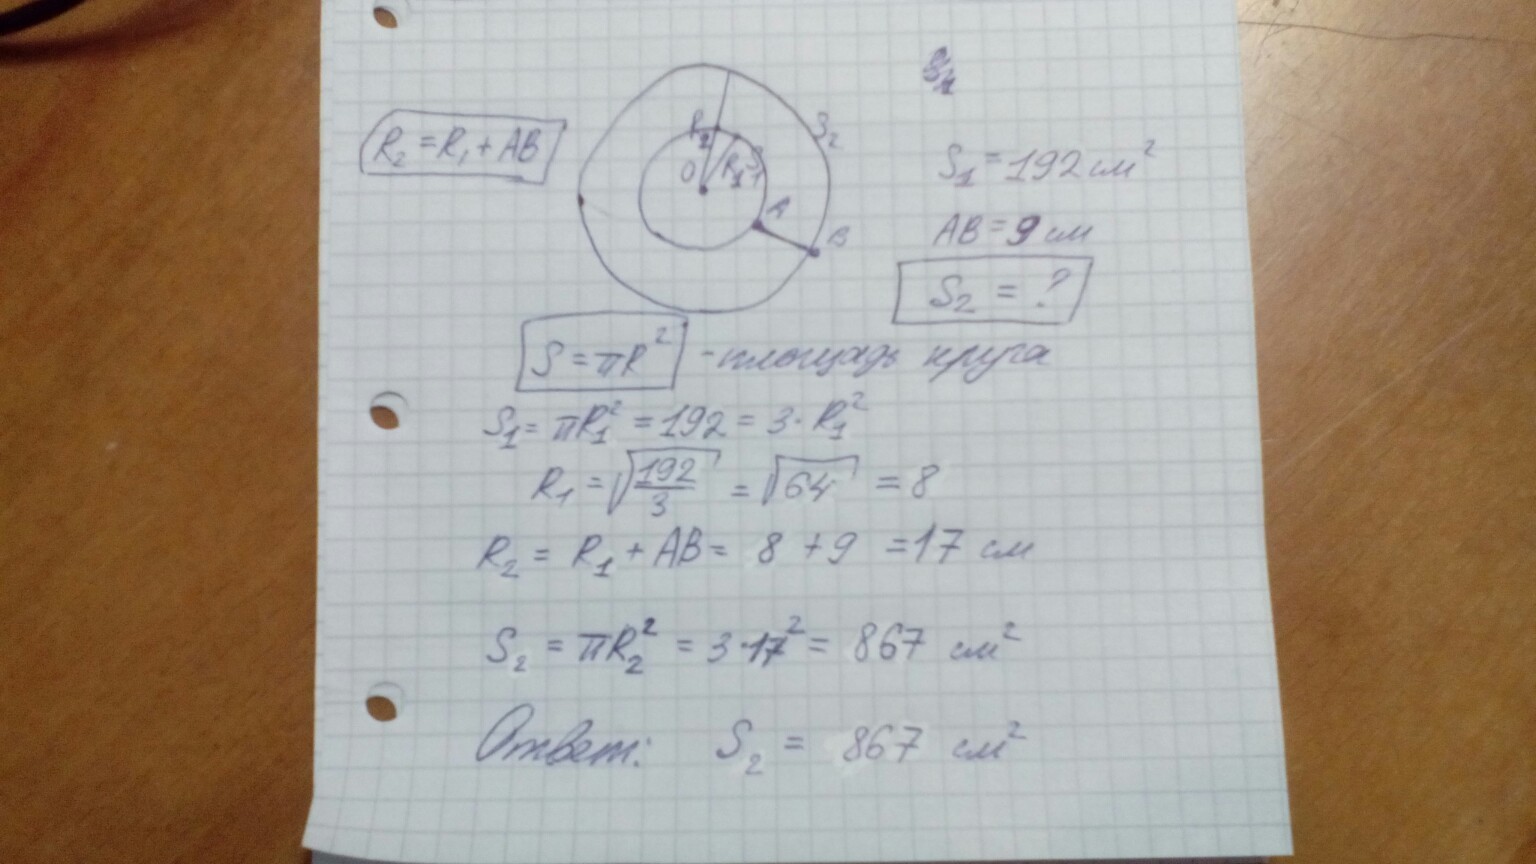 R₂ = R₁ + AB
R₂
S₂
O
R₁
S₁
A
B
S₁ = 192 см²
AB = 9 см
S₂ = ?
S = πR² - площадь круга
S₁ = πR₁² = 192 = 3 · R₁²
R₁ = √(192/3) = √64 = 8
R₂ = R₁ + AB = 8 + 9 = 17 см
S₂ = πR₂² = 3 · 17² = 867 см²
Ответ: S₂ = 867 см²